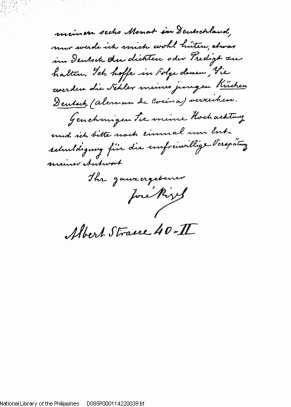 meinen sechs Monat in Deutschland,
nur werde ich mich wohl hüten, etwas
im Deutsch zu dichten oder Predigt zu
halten. Ich hoffe in Folge dessen, Sie
werden die Fehler meines jungen Küchen
Deutsch (Aleman de Cocina) verzeihen.
Genehmigen Sie meine Hochachtung
und ich bitte noch einmal um Ent-
schuldigung für die unfreiwillige Verspätung
meiner Antwort
Ihr ganz ergebener
José Rizal
Albert Strasse 40-II
National Library of the Philippines